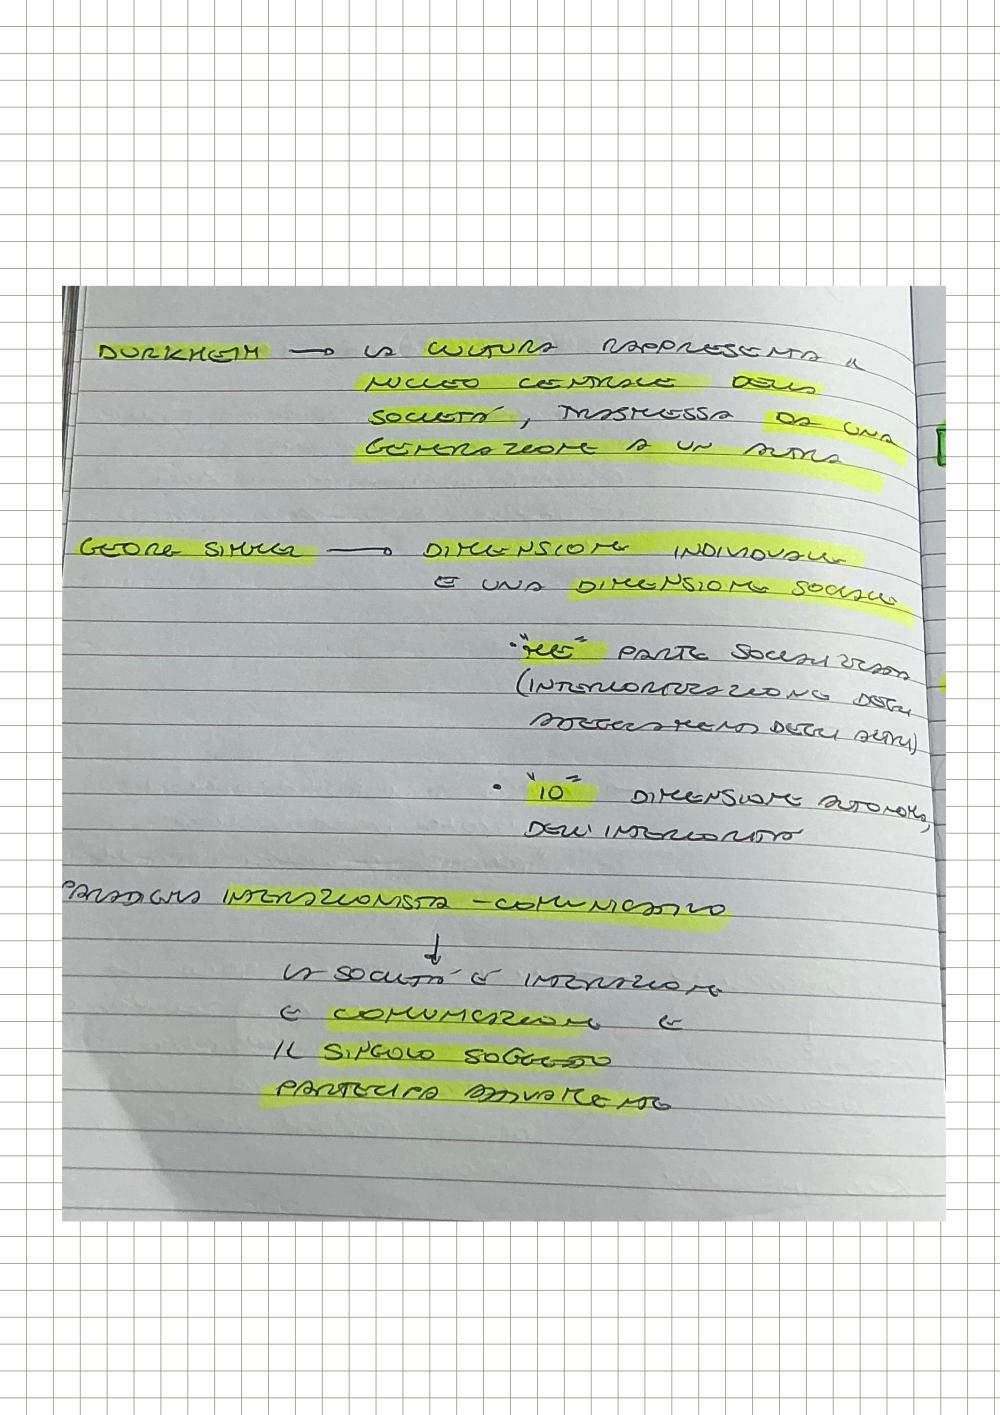 DURKHEIM → LA CULTURA RAPPRESENTA IL
NUCLEO CENTRALE DELLA
SOCIETÀ, TRASMESSA DA UNA
GENERAZIONE A UN ALTRA
GEORG SIMMEL → DIMENSIONE INDIVIDUALE
E UNA DIMENSIONE SOCIALE
• "ME" PARTE SOCIALIZZATA
(INTERIORIZZAZIONE DEGLI
ATTEGGIAMENTI DEGLI ALTRI)
• "IO" DIMENSIONE AUTONOMA,
DELL'INTERIORITÀ
PARADIGMA INTERAZIONISTA - COMUNICATIVO
↓
LA SOCIETÀ È INTERAZIONE
E COMUNICAZIONE E
IL SINGOLO SOGGETTO
PARTECIPA ATTIVAMENTE